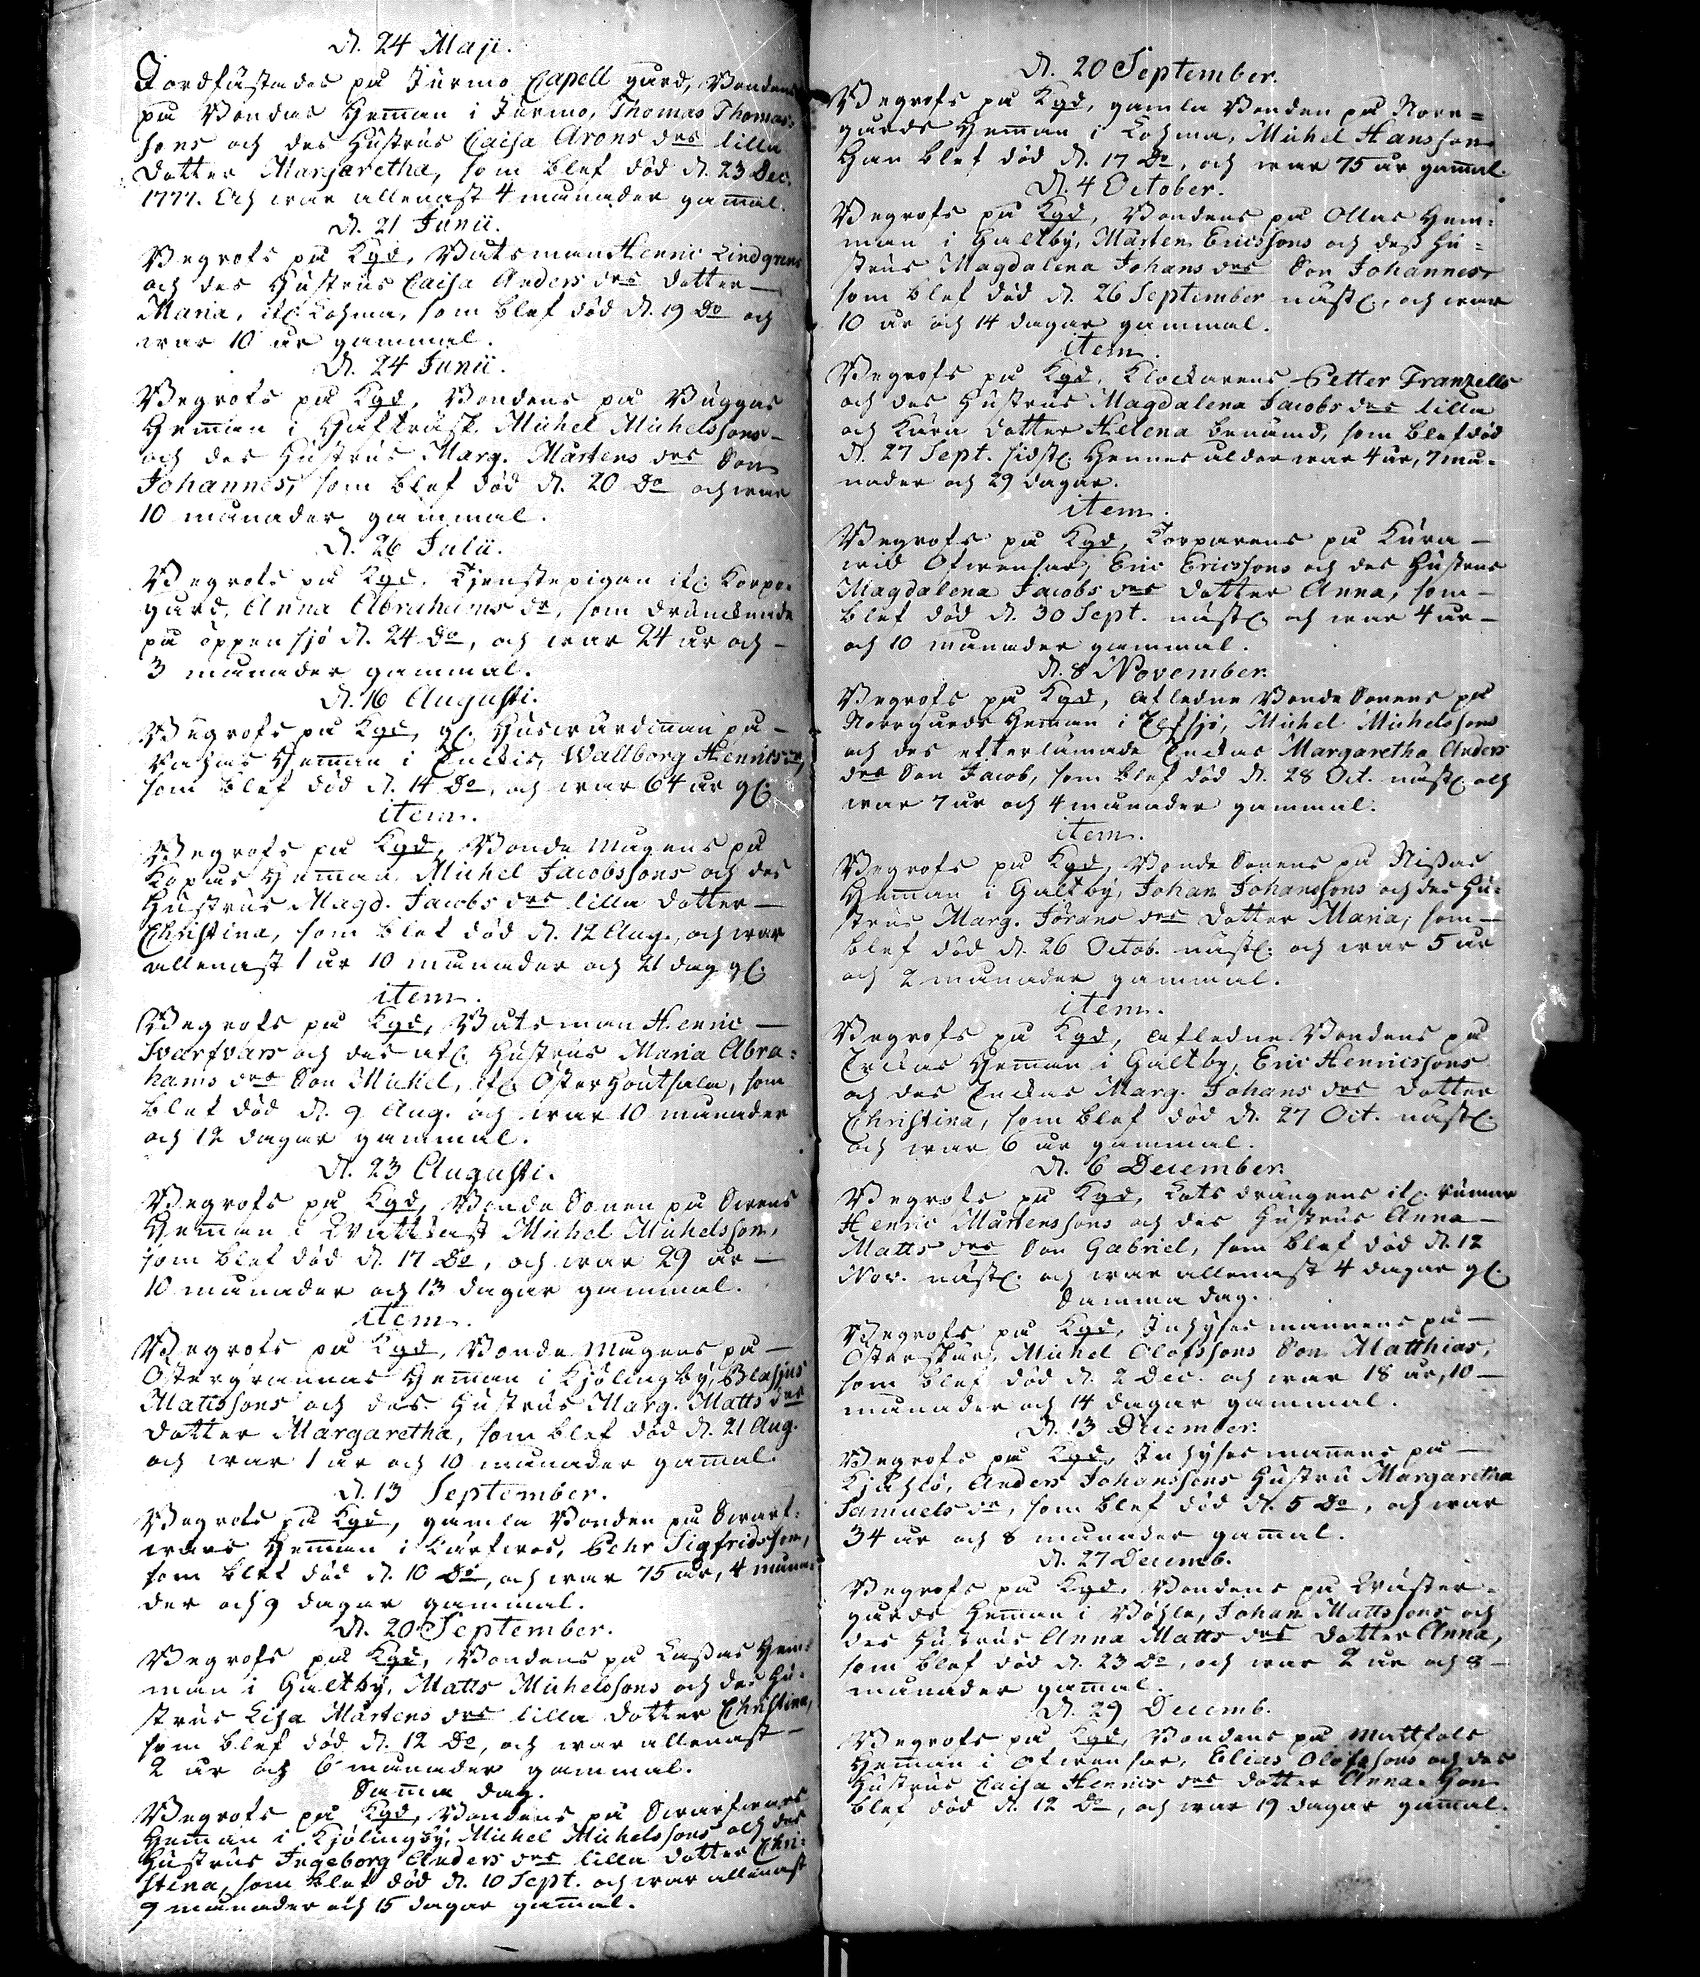 d. 24 Maji.
Jordfästades på Jurmo Capell gård, Bondens
på Bondas Hem̄an i Jurmo, Thomas Thomas-
sons och des Hustrus Caisa Arons drs lilla
dotter Margaretha, som blef död d. 23 Dec.
1777. Och war allenast 4 månader gam̄al.
d. 21 Junii.
Begrofs på Kgd, Båtsman Henric Lindgrens
och des Hustrus Caisa Anders drs dotter
Maria, ifr. Lohma, som blef död d. 19 Do och
war 10 år gammal.
d. 24 Junii.
Begrofs på Kgd, Bondens på Buggas
Hem̄an i Haftträsk, Michel Michelssons
och des Hustrus Marg. Mårtens drs Son
Johannes, som blef död d. 20 Do och war
10 månader gammal.
d. 26 Julii.
Begrofs på Kgd, Tjenstepigan ifr. Korpo-
gård, Anna Abrahams dr, som drunknade
på öppen sjö d. 24 Do, och war 24 år och
3 månader gammal.
d. 16 Augusti.
Begrofs på Kgd, gl. Huswärdinnan på
Hem̄an i Wallborg Henrics dr,
som blef död d. 14 Do, och war 64 år gl.
item.
Begrofs på Kgd, Bonde Mågens på
Kopas Hem̄an Michel Jacobssons och des
Hustrus Magd. Jacobs drs lilla dotter
Christina, som blef död d. 12 Aug., och war
allenast 1 år 10 månader och 21 dag gl.
item.
Begrofs på Kgd, Båtsman Henric
Svarfvars och des afl. Hustrus Maria Abra-
hams drs Son Michel, ifr. Österhoutsala, som
blef död d. 9 Aug. och war 10 månader
och 12 dagar gammal.
d. 23 Augusti.
Begrofs på Kgd, Bonde Sonen på Swens
Hem̄an i Michel Michelsson,
som blef död d. 17 Do, och war 29 år
10 månader och 13 dagar gammal.
item.
Begrofs på Kgd, Bonde Mågens på
Östergrannas Hem̄an i Kjölingby, Blasius
Mattssons och des Hustrus Marg. Matts drs
dotter Margaretha, som blef död d. 21 Aug.
och war 1 år och 10 månader gam̄al.
d. 13 September.
Begrofs på Kgd, gamla Bonden på Swarf-
wars Hem̄an i Pehr Sigfridsson,
som blef död d. 10 Do, och war 75 år, 4 måna-
der och 9 dagar gammal.
d. 20 September.
Begrofs på Kgd, Bondens på Lassas Hem-
man i Galtby, Matts Michelssons och des Hu-
strus Lisa Mårtens drs lilla dotter Christina,
som blef död d. 12 Do, och war allenast
2 år och 6 månader gammal.
Sam̄a dag.
Begrofs på Kgd, Bondens på Swarfwars
Hem̄an i Kjölingby, Michel Michelssons och des
Hustrus Ingeborg Anders drs lilla dotter Chri-
stina, som blef död d. 10 Sept. och war allenast
9 månader och 15 dagar gam̄al.
d. 20 September.
Begrofs på Kgd, gamla Bonden på Norr-
gårds Hem̄an i Lohma, Michel Hansson
Han blef död d. 17 Do, och war 75 år gam̄al.
d. 4 October.
Begrofs på Kgd, Bondens på Ollas Hem-
man i Galtby, Mårten Ericssons och dess Hu-
strus Magdalena Johans drs Son Johannes,
som blef död d. 26 September nästl., och war
10 år och 14 dagar gammal.
item.
Begrofs på Kgd, Klockarens Petter Franzells
och des Hustrus Magdalena Jacobs drs lilla
och kära dotter Helena benämd, som blef död
d. 27 Sept. sidstl. Hennes ålder war 4 år, 7 må-
nader och 29 dagar.
item.
Begrofs på Kgd, Torparens på Kåra
wid Ofwensor, Eric Ericssons och des Hustrus
Magdalena Jacobs drs dotter Anna, som
blef död d. 30 Sept. nästl. och war 4 år
och 10 månader gammal.
d. 8 November.
Begrofs på Kgd, Aflednе Bonde Sonens på
Norrgårds Hem̄an i Elfsjö, Michel Michelssons
och des efterlämnade Enkas Margaretha Anders
drs Son Jacob, som blef död d. 28 Oct. nästl. och
war 7 år och 4 månader gammal.
item.
Begrofs på Kgd, Bonde Sonens på Nissas
Hem̄an i Galtby, Johan Johanssons och des Hu-
strus Marg. Jörans drs dotter Maria, som
blef död d. 26 Octob. nästl. och war 5 år
och 2 månader gammal.
item.
Begrofs på Kgd, Afledne Bondens på
Erckas Hem̄an i Galtby, Eric Henricssons
och des Enckas Marg. Johans drs dotter
Christina, som blef död d. 27 Oct. nästl.
och war 6 år gammal.
d. 6 December.
Begrofs på Kgd, Lots drängens ifr. Rumar
Henric Mårtenssons och des Hustrus Anna
Matts drs Son Gabriel, som blef död d. 12
Nov. nästl. och war allenast 4 dagar gl.
Samma dag.
Begrofs på Kgd, Inhyses mannens på
Österskär, Michel Olofssons Son Matthias,
som blef död d. 2 Dec. och war 18 år, 10
månader och 14 dagar gammal.
d. 13 December.
Begrofs på Kgd, Inhyses man̄ens på
Kjählö, Anders Johanssons Hustru Margaretha
Samuels dr, som blef död d. 5 Do, och war
34 år och 8 månader gam̄al.
d. 27 Decemb.
Begrofs på Kgd, Bondens på Wäster-
gårds Hem̄an i Böhle, Johan Mattssons och
des Hustrus Anna Matts drs dotter Anna,
som blef död d. 23 Do, och war 2 år och 8
månader gam̄al.
d. 29 Decemb.
Begrofs på Kgd, Bondens på Mattfols
Hem̄an i Ofwensor, Elias Olofssons och des
Hustrus Caisa Henrics drs dotter Anna. Hon
blef död d. 12 Do, och war 19 dagar gam̄al.